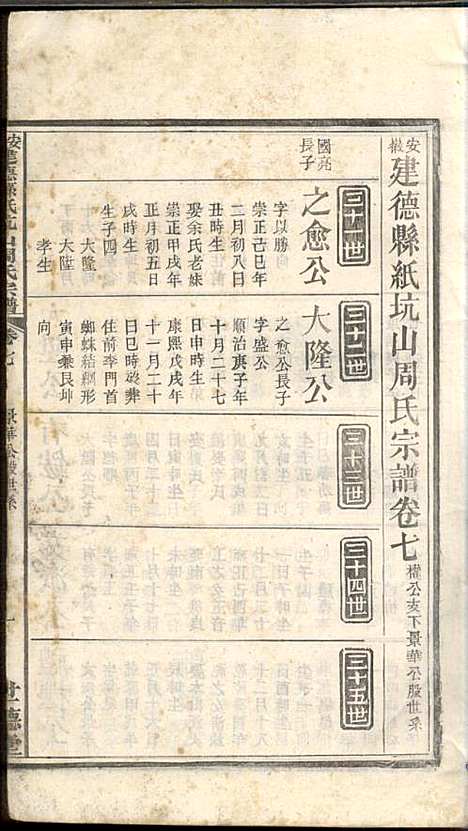 安徽建德縣紙坑山周氏宗譜卷七 權公支下景華公股世系
三十一世
三十二世
三十三世
三十四世
三十五世
國亮長子
之愈公
字以勝
崇正己巳年
二月初八日
丑時生
娶余氏老妹
崇正甲戌年
正月初五日
戌時生
生子四
大隆
大陞
孝生
大隆公
之愈公長子
字盛公
順治庚子年
十月二十七
日申時生
康熙戊戌年
十一月二十
日巳時歿葬
住前李門首
蜘蛛結網形
寅申兼艮坤
向
卷七
景華公股世系
一
世德堂